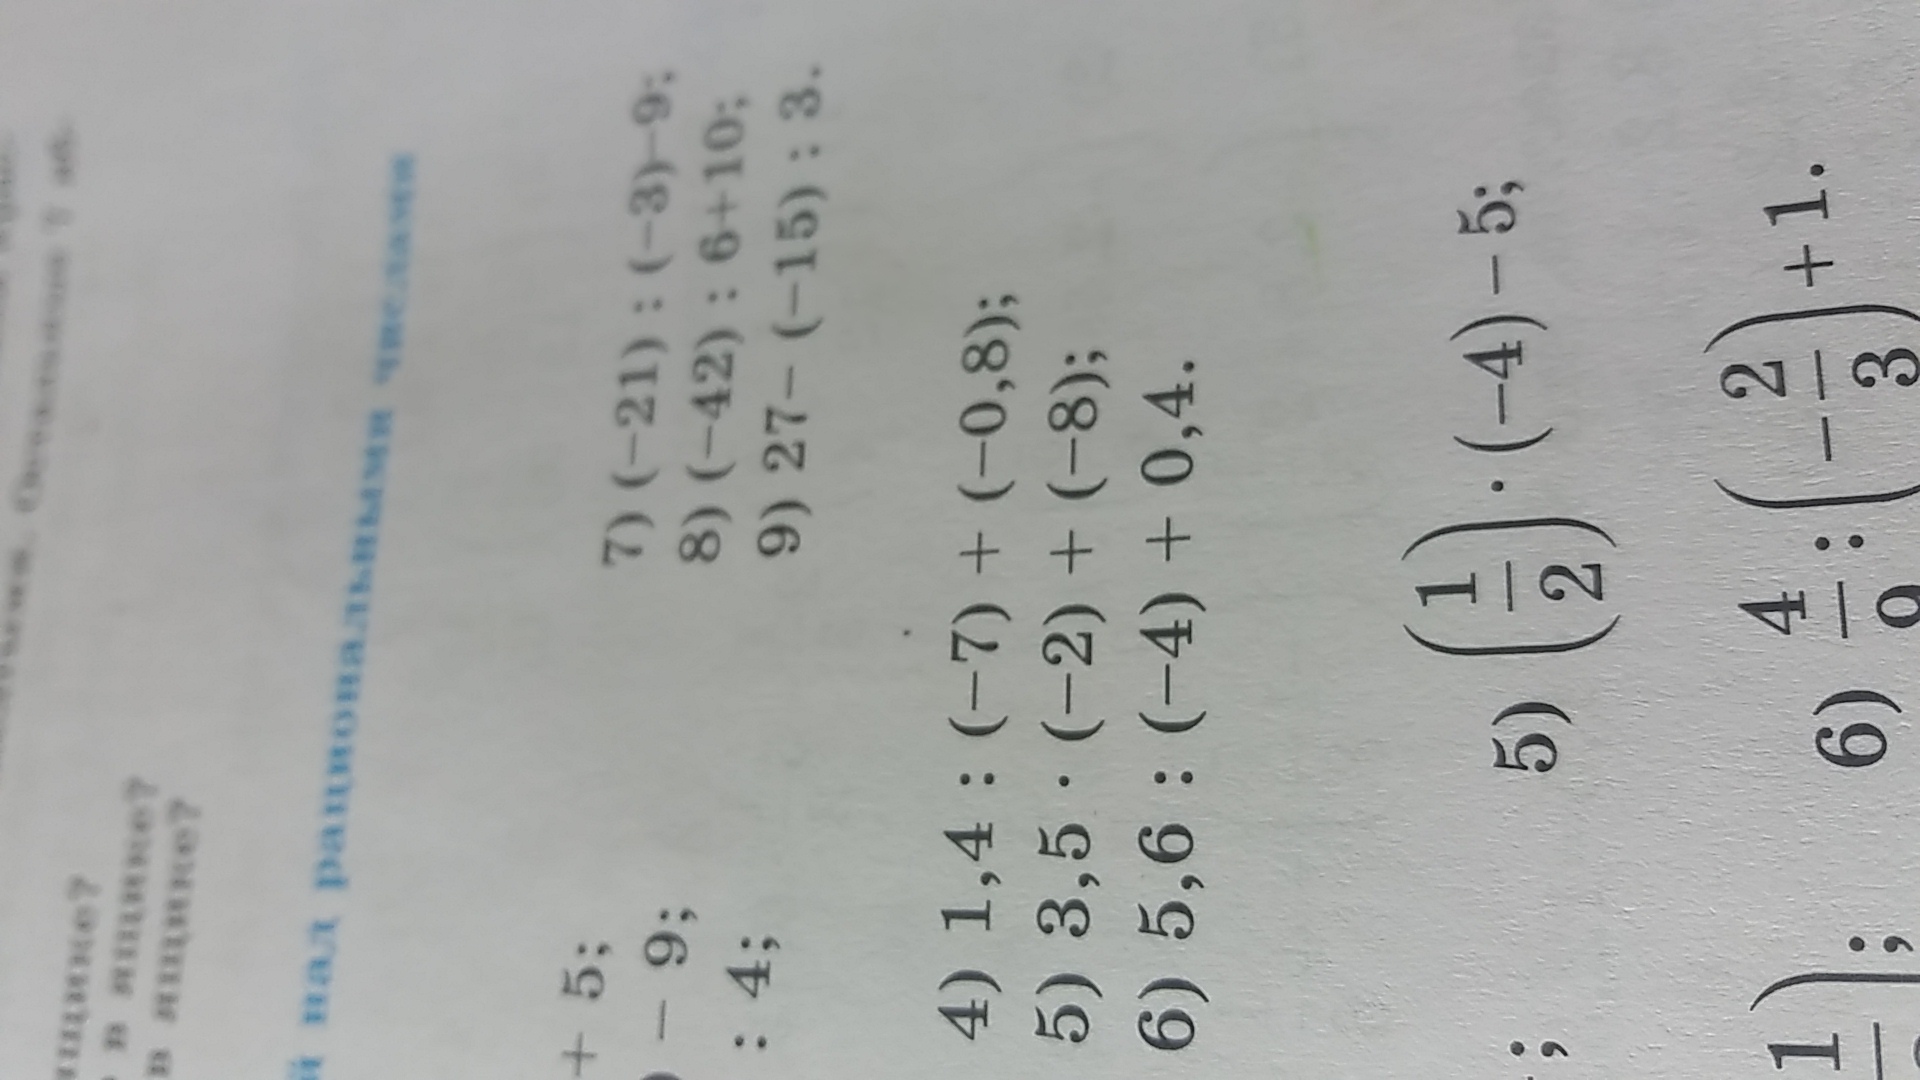 в ящике?
в ящике?
над рациональными числами
+ 5;
7) (−21) : (−3)−9;
− 9;
8) (−42) : 6+10;
: 4;
9) 27− (−15) : 3.
4) 1,4 : (−7) + (−0,8);
5) 3,5 · (−2) + (−8);
6) 5,6 : (−4) + 0,4.
5) (1/2) · (−4) − 5;
6) 4/9 : (−2/3) + 1.